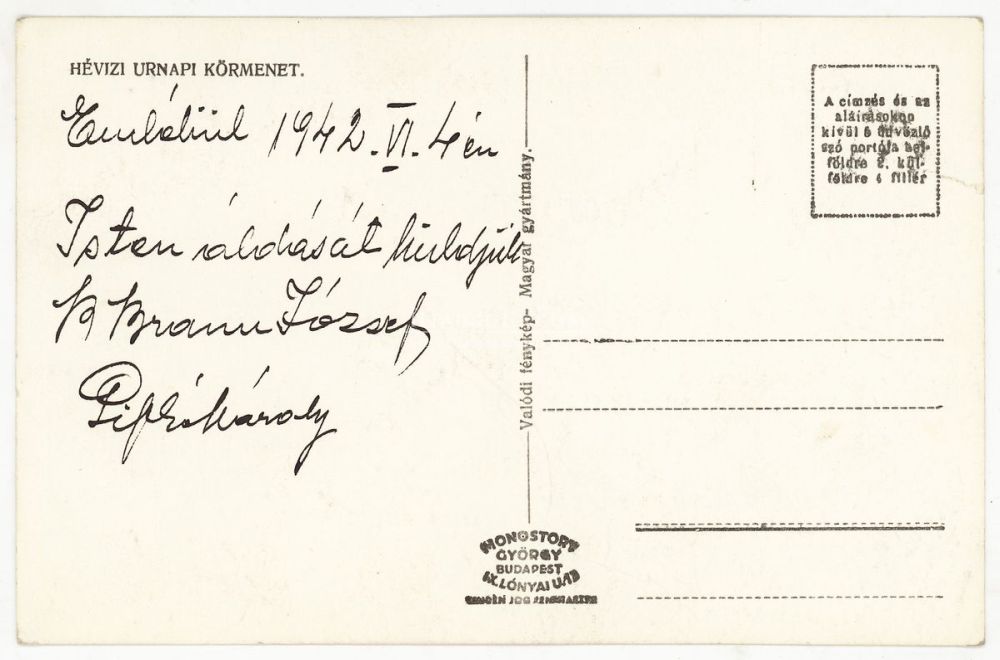 HÉVIZI URNAPI KÖRMENET.
Emlékül 1942. VI. 4 én
Isten áldását küldjük
Braun József
Károly
Valódi fénykép- Magyar gyártmány.
A címzés és az
aláírásokon
kívül 5 üdvözlő
szó portója bel-
földre 2. kül-
földre 4 fillér
MONOSTORY
GYÖRGY
BUDAPEST
IX. LÓNYAI U. 13
MINDEN JOG FENNTARTVA